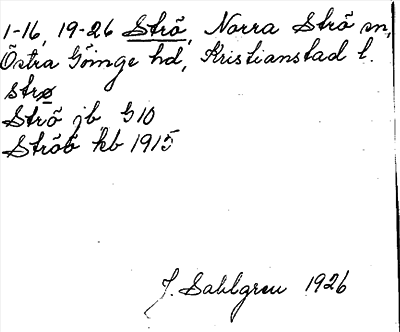 1-16, 19-26 Strö, Norra Strö sn,
Östra Göinge hd, Kristianstad l.
strø
Strö jb G10
Ströö kb 1915
J. Sahlgren 1926